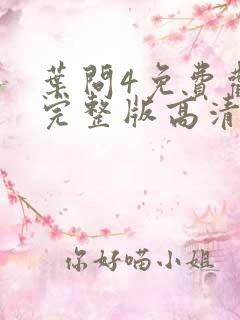 葉問4免費
完整版高清
你好喵小姐